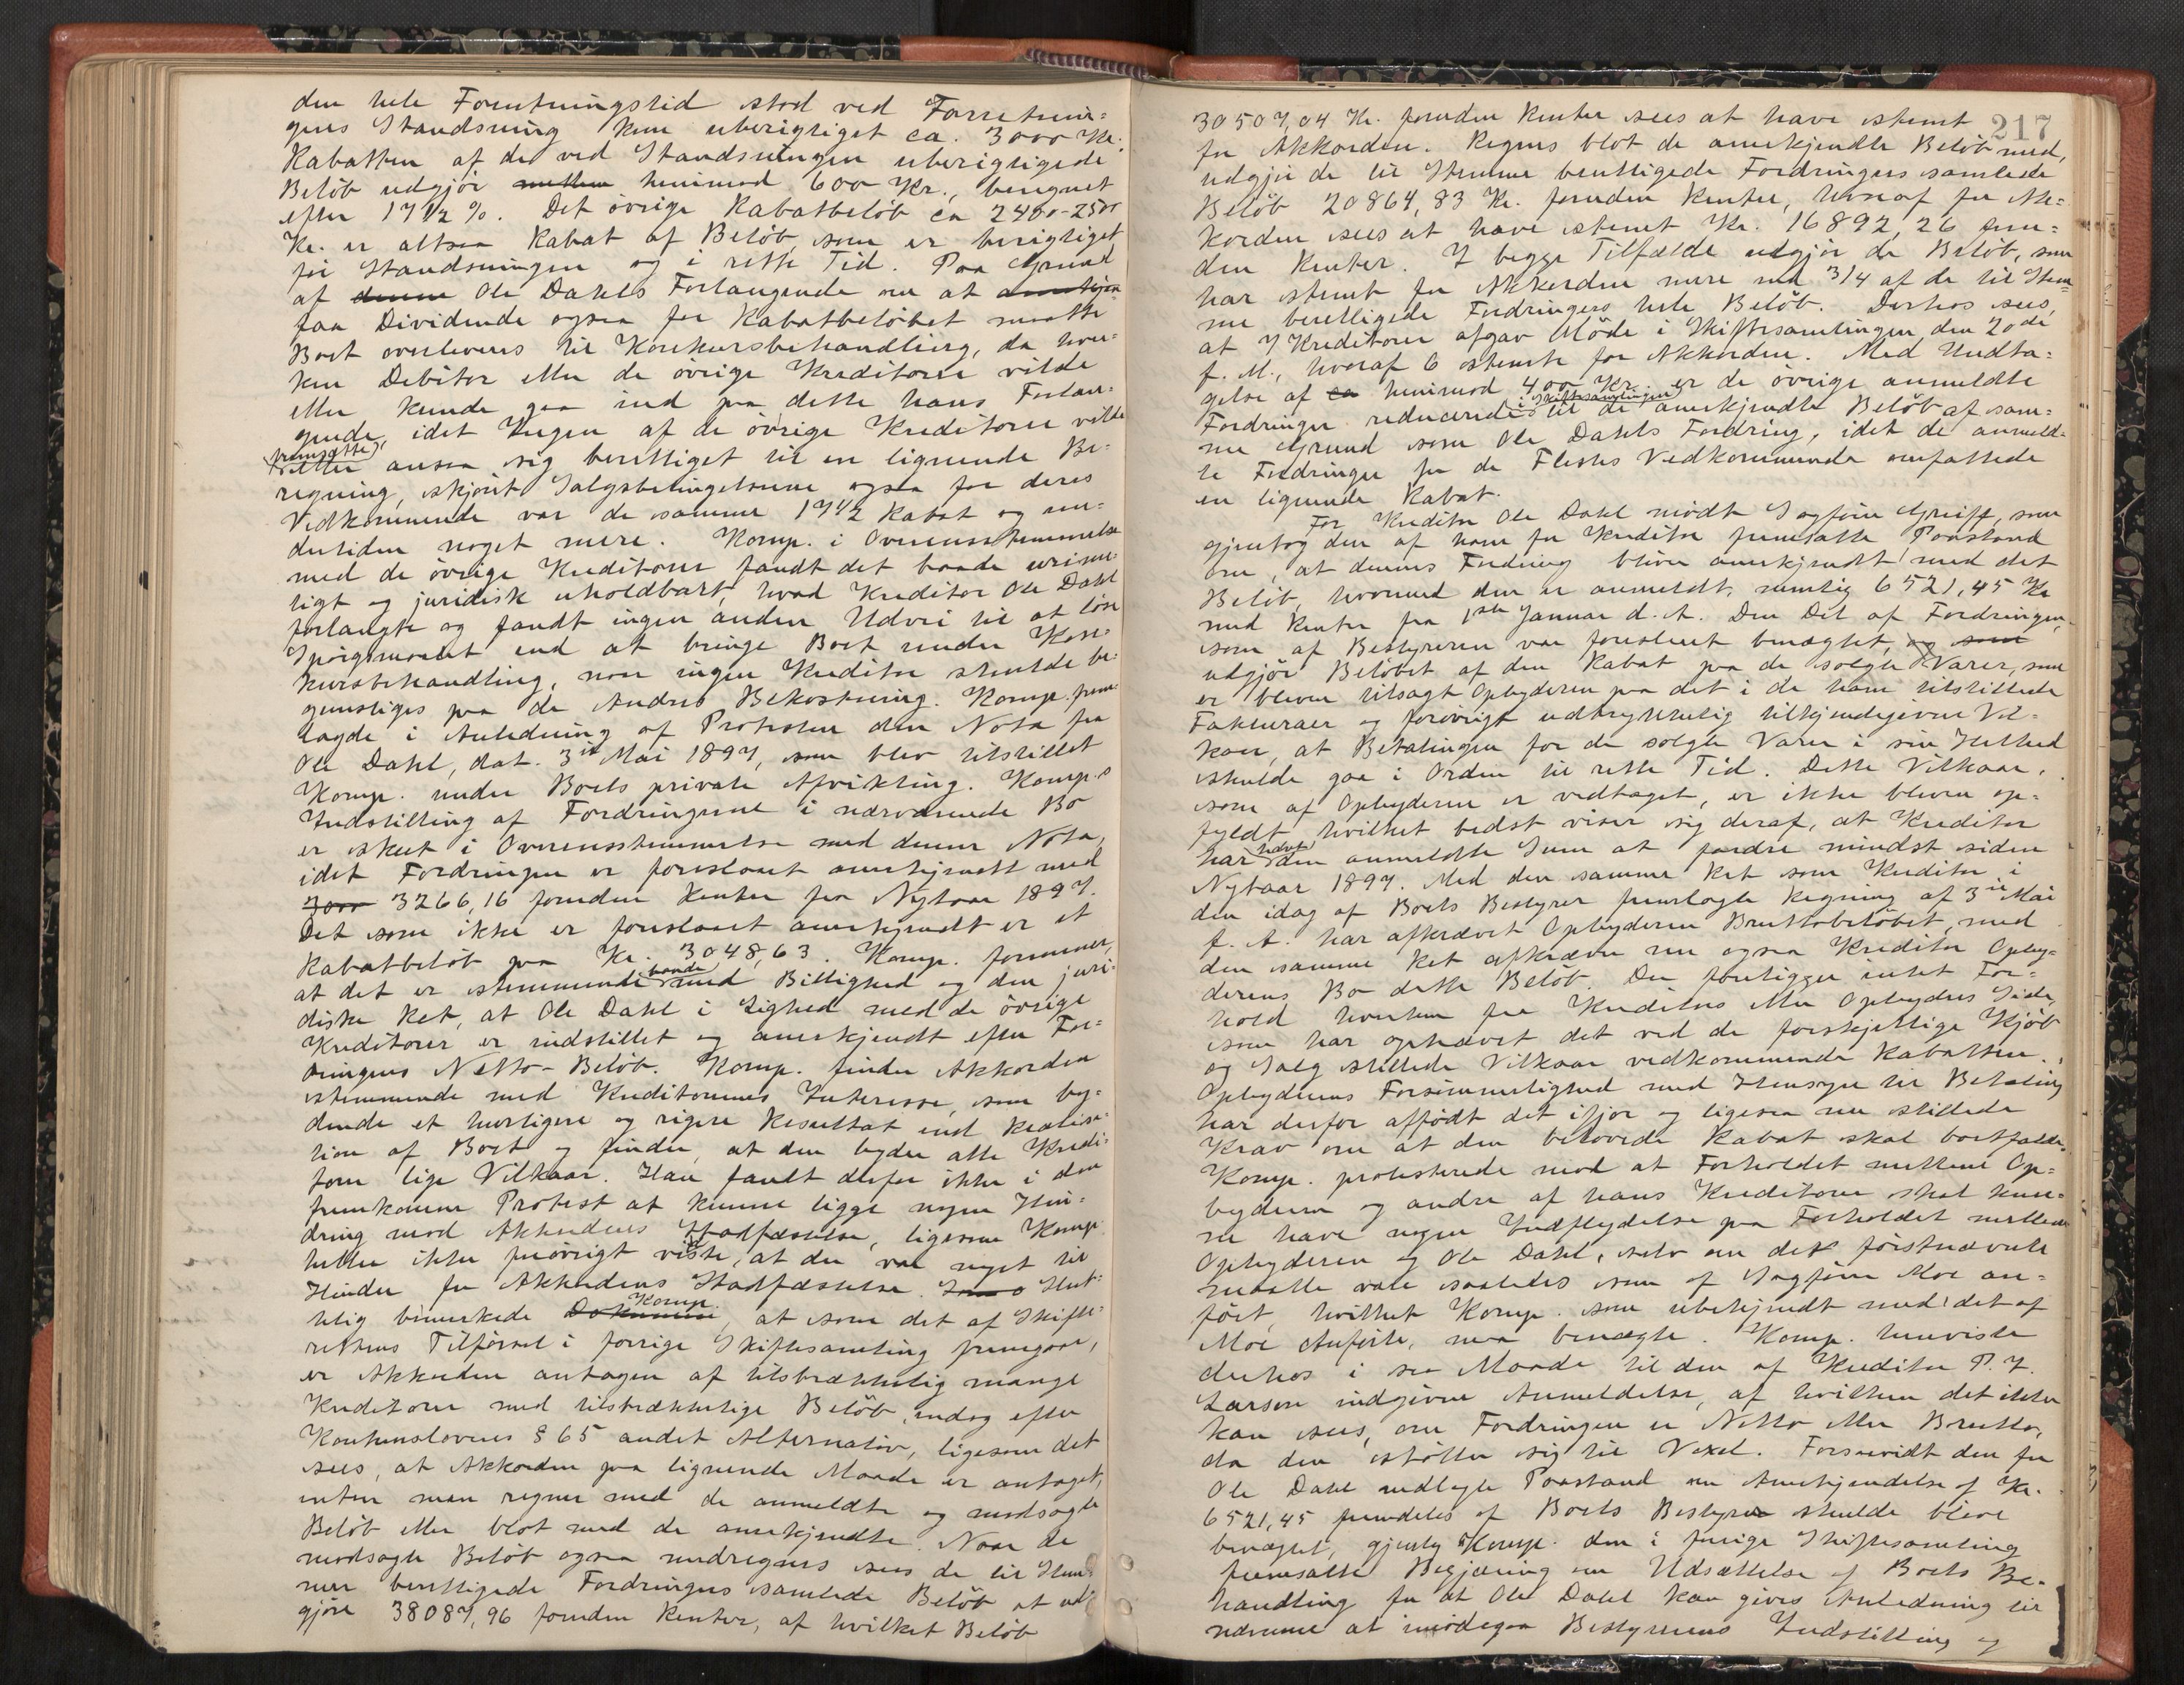 den hele Forretningstid stod ved Forretnin-
gens Standsning kun uberigtiget ca. 3000 Kr.
Rabatten af de ved Standsningen uberigtigede
Beløb udgjør mellem henimod 600 Kr., beregnet
efter 17 1/2 %. Det øvrige Rabatbeløb ca 2400-2500
Kr. er altsaa Rabat af Beløb, som er berigtiget
før Standsningen og i rette Tid. Paa Grund
af denne Ole Dahls Forlangende om at
faa Dividende ogsaa for Rabatbeløbet maatte
Boet overleveres til Konkursbehandling, da hver-
ken Debitor eller de øvrige Kreditorer vilde
eller kunde gaa ind paa dette hans Forlan-
gende, idet Ingen af de øvrige Kreditorer vilde
fremsætte eller ansaa sig berettiget til en lignende Be-
regning, skjønt Salgsbetingelserne ogsaa for deres
Vedkommende var de samme 17 1/2 Rabat og un-
dertiden noget mere. Komp. i Overensstemmelse
med de øvrige Kreditorer fandt det baade urime-
ligt og juridisk uholdbart, hvad Kreditor Ole Dahl
forlangte og fandt ingen anden Udvei til at løse
Spørgsmaalet end at bringe Boet under Kon-
kursbehandling, naar ingen Kreditor skulde be-
gunstiges paa de Andres Bekostning. Komp. frem-
lagde i Anledning af Protesten den Nota fra
Ole Dahl, dat. 3die Mai 1897, som blev tilstillet
Komp. under Boets private Afvikling. Komp.s
Indstilling af Fordringerne i nærværende Bo
er skeet i Overensstemmelse med denne Nota,
idet Fordringen er foreslaaet anerkjendt med
3000 3266,16 foruden Renter fra Nytaar 1897.
Det som ikke er foreslaaet anerkjendt er et
Rabatbeløb paa Kr. 3048,63. Komp. formener,
at det er stemmende baade med Billighed og den juri-
diske Ret, at Ole Dahl i Lighed med de øvrige
Kreditorer er indstillet og anerkjendt efter For-
dringens Netto-Beløb. Komp. finder Akkorden
stemmende med Kreditorernes Interesse, som by-
dende et hurtigere og rigere Resultat end Realisa-
tion af Boet og finder, at den byder alle Kredi-
torer lige Vilkaar. Han fandt derfor ikke i den
fremkomne Protest at kunne ligge nogen Hin-
dring mod Akkordens Stadfæstelse, ligesom Komp.
heller ikke forøvrigt vidste, at der var noget til
Hinder for Akkordens Stadfæstelse. Slut-
telig bemærkede Komp., at som det af Skifte-
rettens Tilførsel i forrige Skiftesamling fremgaar,
er Akkorden antagen af tilstrækkelig mange
Kreditorer med tilstrækkelige Beløb, endog efter
Konkurslovens § 65 andet Alternativ, ligesom det
sees, at Akkorden paa lignende Maade er antaget,
enten man regner med de anmeldte og modsagte
Beløb eller blot med de anerkjendte. Naar de
modsagte Beløb ogsaa medregnes sees de til Stem-
mer berettigede Fordringers samlede Beløb at ud-
gjøre 38087,96 foruden Renter, af hvilket Beløb
217
30507,04 Kr. foruden Renter sees at have stemt
for Akkorden. Regnes blot de anerkjendte Beløb med,
udgjør de til Stemme berettigede Fordringers samlede
Beløb 20864,83 Kr. foruden Renter, hvoraf for Ak-
korden sees at have stemt Kr. 16892,26 foru-
den Renter. I begge Tilfælde udgjør de Beløb, som
har stemt for Akkorden mere end 3/4 af de til Stem-
me berettigede Fordringers hele Beløb. Derhos sees,
at 7 Kreditorer afgav Møde i Skiftesamlingen den 20de
f. M., hvoraf 6 stemte for Akkorden. Med Undta-
gelse af ca henimod 400 Kr. er de øvrige anmeldte
Fordringer reducerede i Skiftesamlingen til de anerkjendte Beløb af sam-
me Grund som Ole Dahls Fordring, idet de anmeld-
te Fordringer for de Flestes Vedkommende omfattede
en lignende Rabat.
For Kreditor Ole Dahl mødte Sagfører Greiff, som
gjentog den af ham for Kreditor fremsatte Paastand
om, at dennes Fordring bliver anerkjendt med det
Beløb, hvormed den er anmeldt, nemlig 6521,45 Kr
med Renter fra 1ste Januar d. A. Den Del af Fordringen,
som af Bestyreren var foreslaaet benægtet, og som
udgjør Beløbet af den Rabat paa de solgte Varer, som
er bleven tilsagt Opbyderen paa det i de ham tilstillede
Fakturaer og forøvrigt udtrykkelig tilkjendegivne Vil-
kaar, at Betalingen for de solgte Varer i sin Helhed
skulde gaa i Orden til rette Tid. Dette Vilkaar,
som af Opbyderen er vedtaget, er ikke bleven op-
fyldt, hvilket bedst viser sig deraf, at Kreditor
har den anmeldte Sum at fordre mindst siden
Nytaar 1897. Med den samme Ret som Kreditor i
den idag af Boets Bestyrer fremlagte Regning af 3die Mai
f. A. har afkrævet Opbyderen Bruttobeløbet, med
den samme Ret afkræver nu ogsaa Kreditor Opby-
derens Bo dette Beløb. Der foreligger intet For-
hold hverken fra Kreditors eller Opbyders Side,
som har ophævet det ved de forskjellige Kjøb
og Salg stillede Vilkaar vedkommende Rabatten.
Opbyderens Forsømmelighed med Hensyn til Betaling
har derfor affødt det ifjor og ligesaa nu stillede
Krav om at den betovede Rabat skal bortfalde.
Komp. protesterede mod at Forholdet mellem Op-
byderen og andre af hans Kreditorer skal kun-
ne have nogen Indflydelse paa Forholdet mellem
Opbyderen og Ole Dahl, selv om det førstnævnte
maatte være saaledes som af Sagfører Moe an-
ført, hvilket Komp. som ubekjendt med det af
Moe Anførte, maa benægte. Komp. henviste
derhos i saa Maade til den af Kreditor P. I.
Larsen indgivne Anmeldelse, af hvilken det ikke
kan sees, om Fordringen er Netto eller Brutto,
da den støtter sig til Vexel. Forsaavidt den for
Ole Dahl nedlagte Paastand om Anerkjendelse af Kr.
6521,45 fremdeles af Boets Bestyrer skulde blive
benægtet, gjentog Komp. den i forrige Skiftesamling
fremsatte Begjæring om Udsættelse af Boets Be-
handling for at Ole Dahl kan gives Anledning til
nærmere at imødegaa Bestyrerens Indstilling og